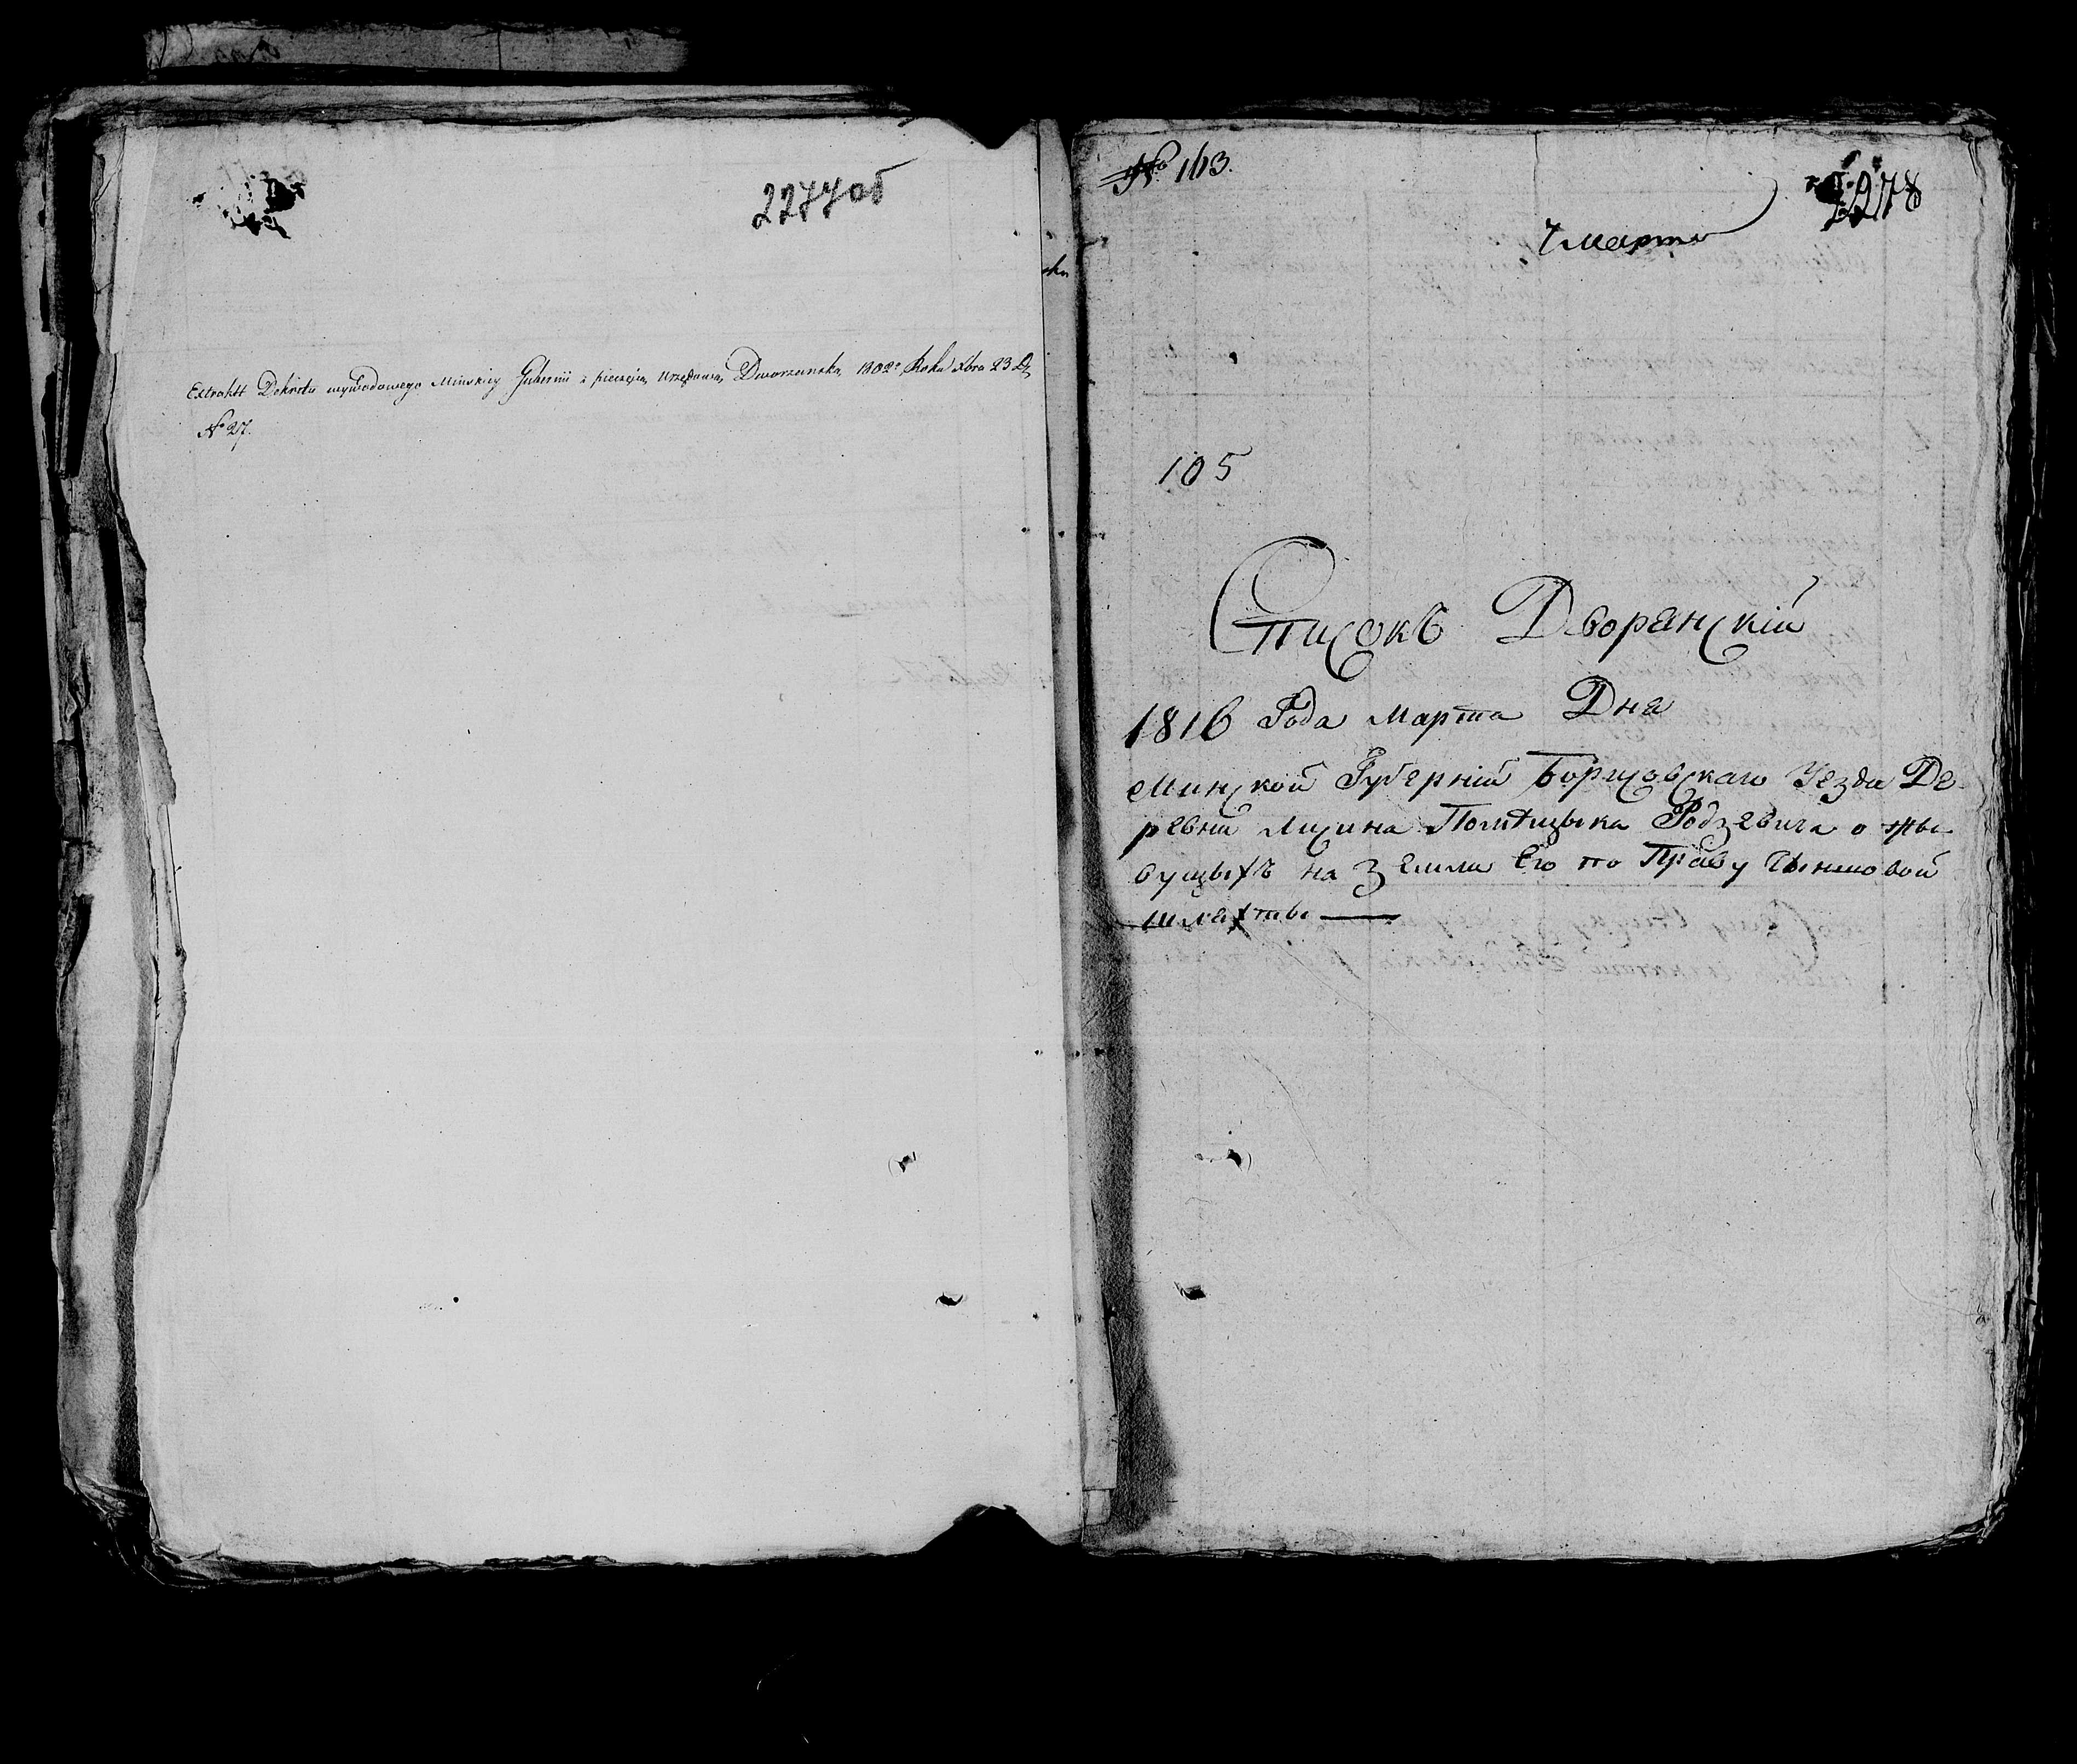 2277 об
Extraktt Dekretu wywodowego Minskiey Gubernii z pieczęcią Urzędową Dworzanską 1802º Roku xbra 23 D.
№ 27.
№ 163.
2278
7 марта
105
Списокъ Дворянскій
1816 Года Марта Дня
Минской Губерніи Борисовскаго Уезда Де-
ревни Лисина Помѣщыка Родзевича о жы-
вущыхъ на Земли Его по Праву Чыншовой
шляхты —